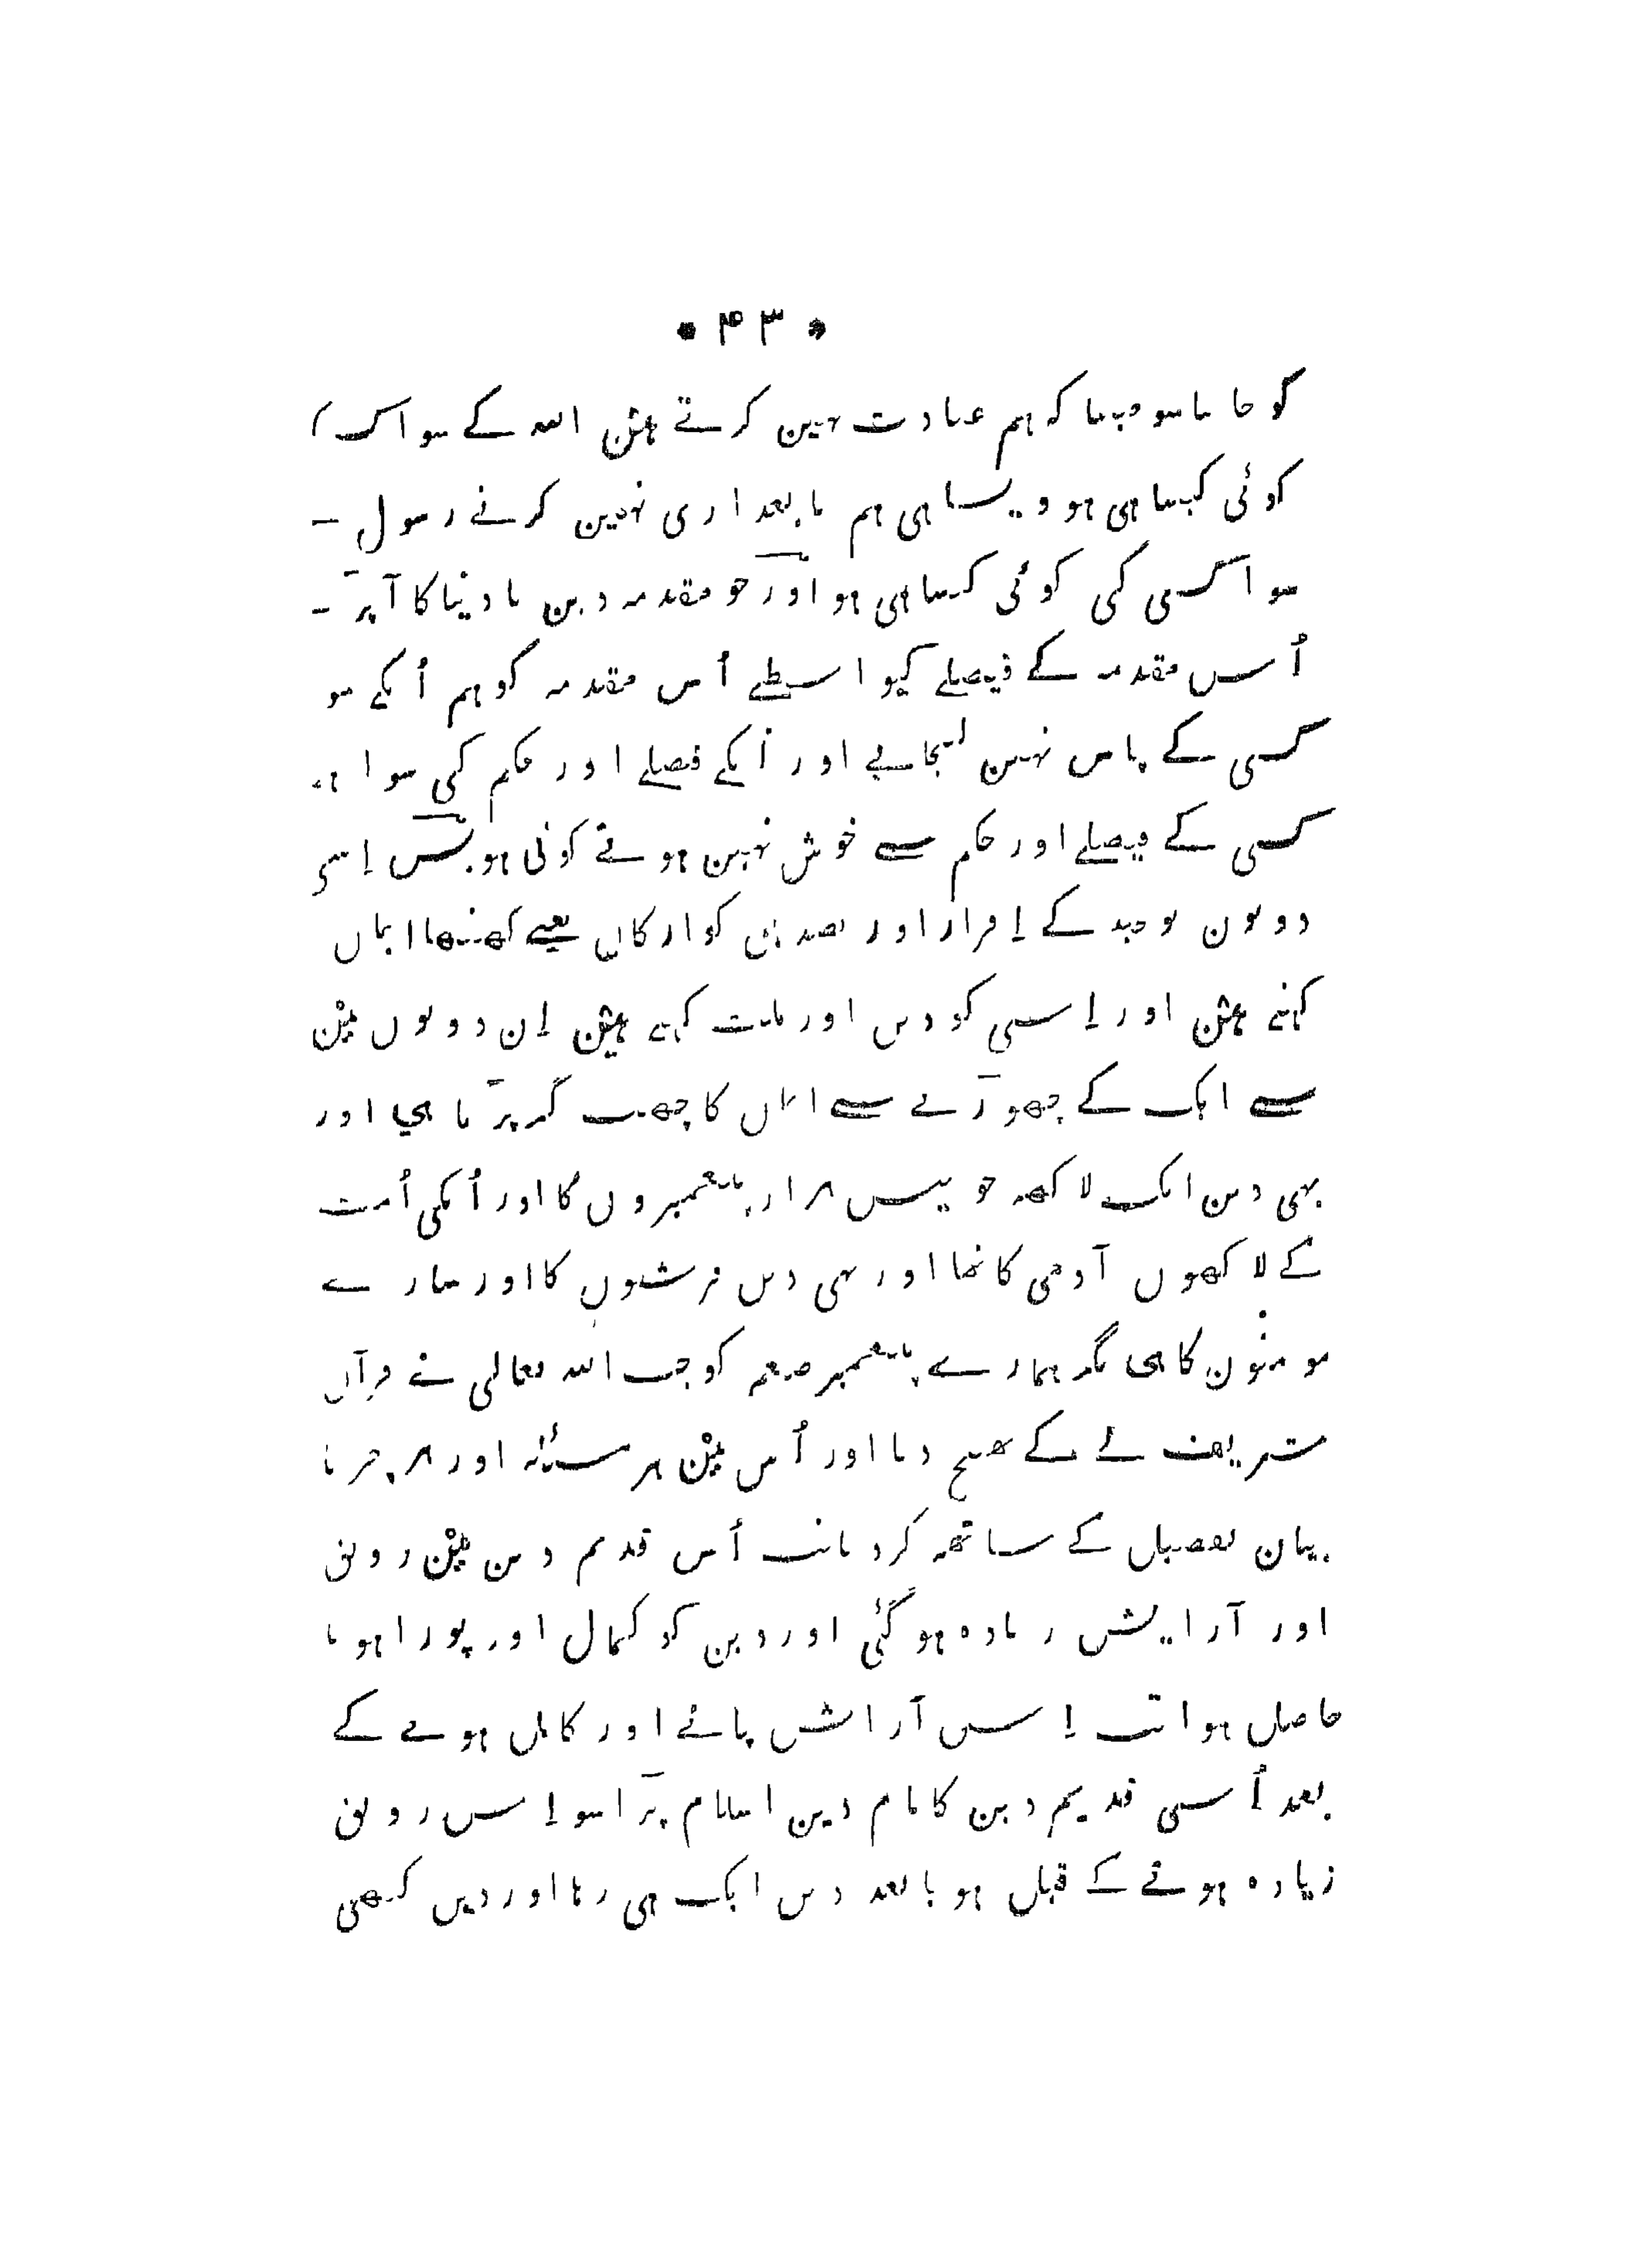 • ۴۳ •
کو جاننا سو جیسا کہ ہم عبادت نہین کرتے ہین اللہ کے سوا کسی
کوئی کیسا ہی ہو ویسا ہی ہم تابعداری نہین کرتے رسول
سوا کسی کی کوئی کیسا ہی ہو اور جو مقدمہ دین یا دنیا کا آپڑے
اُس مقدمہ کے فیصلے کیواسطے اُس مقدمہ کو ہم اُنکے سو
کسی کے پاس نہین لیجاتے اور اُنکے فیصلے اور حکم کی سوا
کسی کے فیصلے اور حکم سے خوش نہین ہوتے کوئی ہو بس اِسی
دونون توحید کے اِقرار اور تصدیق کو ارکان یعنے کھنبھا ایمان
کہتے ہین اور اِسی کو دین اور ملت کہتے ہین اِن دونوں مین
سے ایک کے چھوڑنے سے ایمان کا چھت گر پڑتا ہی اور
یہی دین ایک لاکھہ چوبیس ہزار پیغمبروں کا اور اُنکی اُمت
کے لاکھوں آدمی کا تھا اور یہی دین فرشتوں کا اور سارے
مومنون کا ہی مگر ہمارے پیغمبر صلعم کو جب اللہ تعالی نے قرآن
شریف لے کے بھیج دیا اور اُس مین ہر مسئلہ اور ہر چیز کا
بیان تفصیل کے ساتھہ کردیا تب اُس قدیم دین مین رونق
اور آرایش زیادہ ہوگئی اور دین کو کمال اور پورا ہونا
حاصل ہوا تب اِس آرایش پانے اور کامل ہونے کے
بعد اُسی قدیم دین کا نام دین اسلام پڑا سو اِس رونق
زیادہ ہونے کے قبل ہو یا بعد دین ایک ہی رہا اور دین کبھی